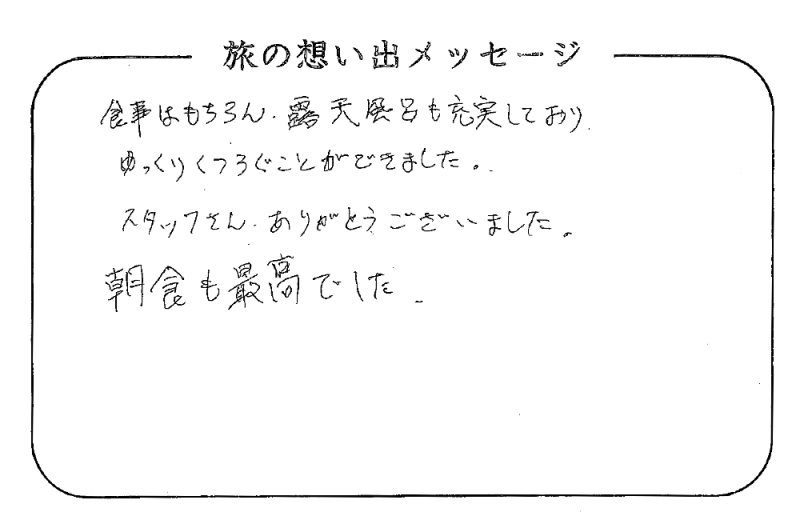 旅の想い出メッセージ
食事はもちろん、露天風呂も充実しており、
ゆっくりくつろぐことができました。
スタッフさん、ありがとうございました。
朝食も最高でした。